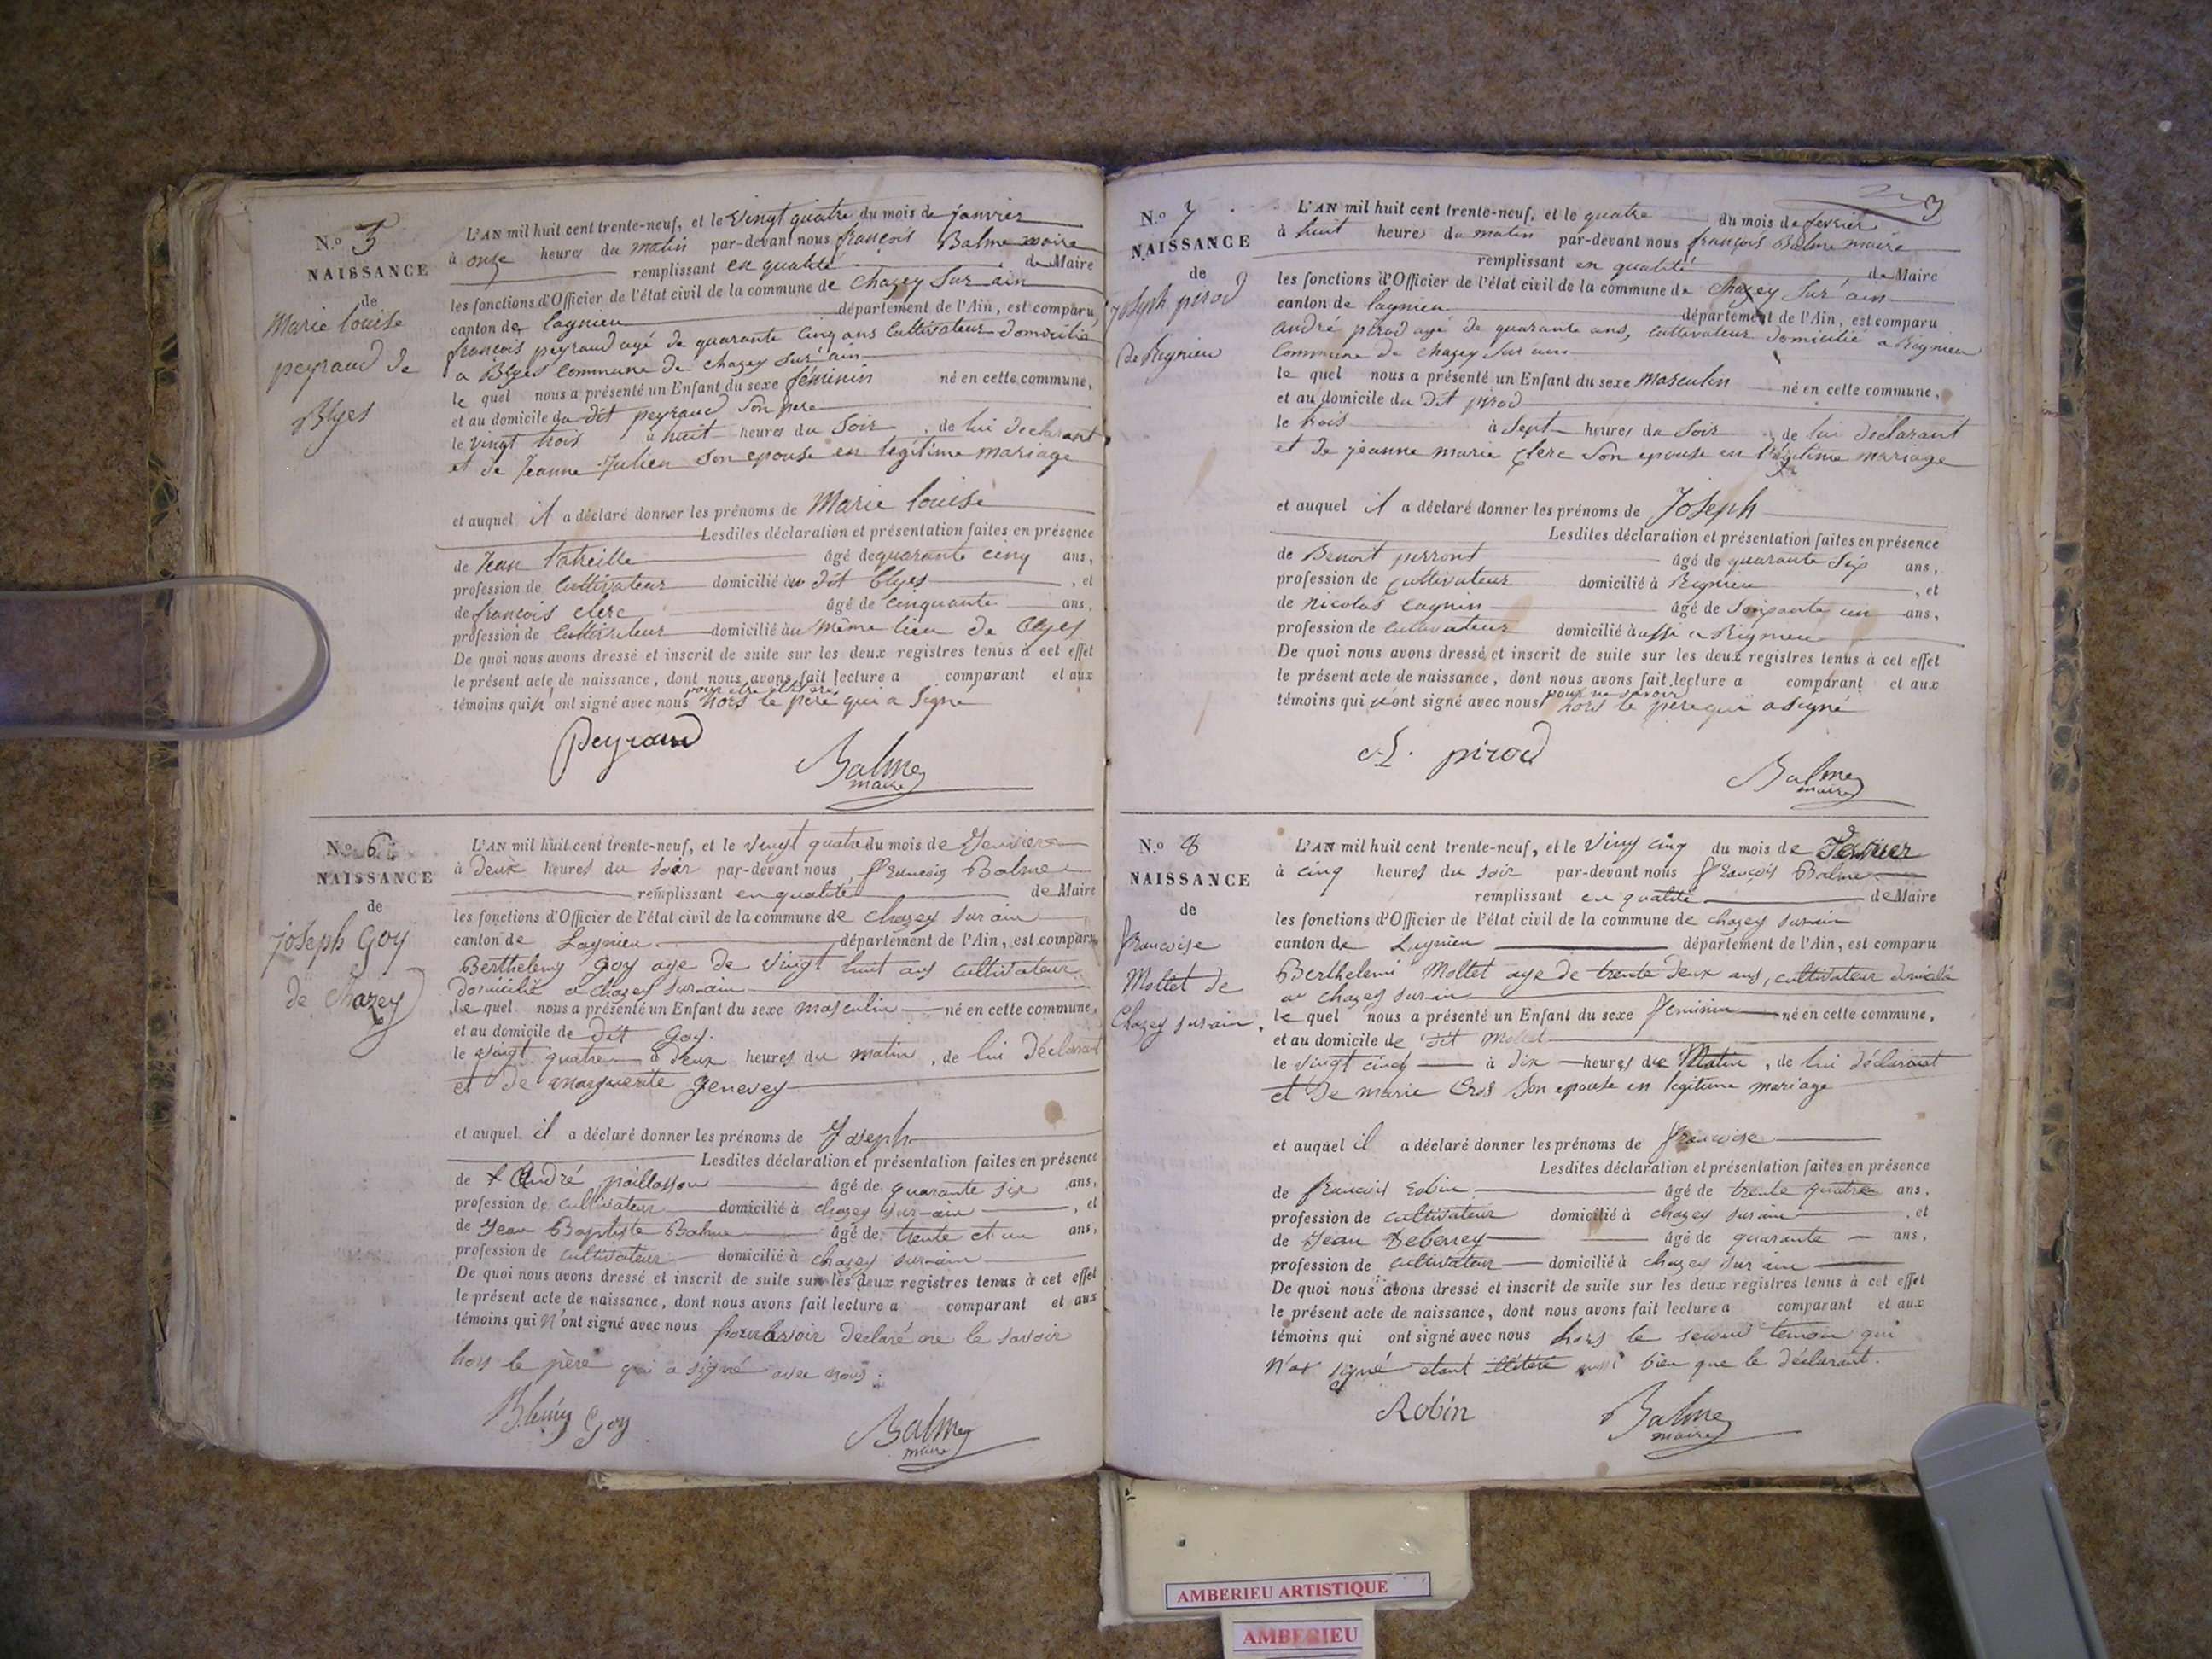 N.o 5
NAISSANCE
de
Marie louise
peyraud de
Blyes
L'AN mil huit cent trente-neuf, et le Vingt quatre du mois de janvier
à onze heures du matin par-devant nous françois Balme maire
remplissant en qualité de Maire
les fonctions d'Officier de l'état civil de la commune de chazey Sur ain
canton de lagnieu département de l'Ain, est comparu
françois peyraud agé de quarante Cinq ans Cultivateur domicilié
a Blyes Commune de chazey Sur ain
le quel nous a présenté un Enfant du sexe féminin né en cette commune,
et au domicile du dit peyraud Son pere
le vingt trois à huit heures du Soir, de lui déclarant
et de Jeanne Julien Son epouse en légitime mariage
et auquel il a déclaré donner les prénoms de Marie louise
Lesdites déclaration et présentation faites en présence
de Jean âgé de quarante cinq ans,
profession de Cultivateur domicilié au dit Blyes, et
de françois clerc âgé de Cinquante ans,
profession de Cultivateur domicilié au même lieu de Blyes
De quoi nous avons dressé et inscrit de suite sur les deux registres tenus à cet effet
le présent acte de naissance, dont nous avons fait lecture a comparant et aux
témoins qui n'ont signé avec nous hors le père qui a Signé
Peyraud
Balme
maire
N.o 6
NAISSANCE
de
joseph Goy
de Chazey
L'AN mil huit cent trente-neuf, et le vingt quatre du mois de Janvier
à deux heures du soir par-devant nous François Balme
remplissant en qualité de Maire
les fonctions d'Officier de l'état civil de la commune de chazey sur ain
canton de Lagnieu département de l'Ain, est comparu
Berthelemy Goy age de vingt huit ans cultivateur
domicilié a chazey sur-ain
le quel nous a présenté un Enfant du sexe masculin né en cette commune,
et au domicile de dit Goy.
le vingt quatre à deux heures du matin, de lui déclarant
et de marguerite Genevey
et auquel il a déclaré donner les prénoms de Joseph
Lesdites déclaration et présentation faites en présence
de André paillasson âgé de quarante six ans,
profession de cultivateur domicilié à chazey sur-ain, et
de Jean Baptiste Balme âgé de trente et un ans,
profession de cultivateur domicilié à chazey sur-ain
De quoi nous avons dressé et inscrit de suite sur les deux registres tenus à cet effet
le présent acte de naissance, dont nous avons fait lecture a comparant et aux
témoins qui n'ont signé avec nous pour avoir declaré ne le savoir
hors le père qui a signé avec nous.
B.lémy Goy
Balme
maire
3
N.o 7
NAISSANCE
de
joseph pirod
de Rignieu
L'AN mil huit cent trente-neuf, et le quatre du mois de fevrier
à huit heures du matin par-devant nous françois Balme maire
remplissant en qualité de Maire
les fonctions d'Officier de l'état civil de la commune de chazey Sur ain
canton de lagnieu département de l'Ain, est comparu
andré pirod agé de quarante ans, cultivateur domicilié a Rignieu
Commune de chazey Sur ain
le quel nous a présenté un Enfant du sexe masculin né en cette commune,
et au domicile du dit pirod
le trois à Sept heures du Soir, de lui déclarant
et de jeanne marie clerc Son epouse en légitime mariage
et auquel il a déclaré donner les prénoms de Joseph
Lesdites déclaration et présentation faites en présence
de Benoit perront âgé de quarante Six ans,
profession de Cultivateur domicilié à Rignieu, et
de nicolas cagnin âgé de Soixante un ans,
profession de Cultivateur domicilié aussi a Rignieu
De quoi nous avons dressé et inscrit de suite sur les deux registres tenus à cet effet
le présent acte de naissance, dont nous avons fait lecture a comparant et aux
pour ne savoir
témoins qui n'ont signé avec nous hors le père qui a Signé
pirod
Balme
maire
N.o 8
NAISSANCE
de
Françoise
Mollet de
Chazey sur-ain.
L'AN mil huit cent trente-neuf, et le Vingt cinq du mois de
à cinq heures du soir par-devant nous François Balme
remplissant en qualité de Maire
les fonctions d'Officier de l'état civil de la commune de chazey sur-ain
canton de Lagnieu département de l'Ain, est comparu
Berthelemi Mollet age de trente deux ans, cultivateur domicilié
a chazey sur-ain
le quel nous a présenté un Enfant du sexe Feminin né en cette commune,
et au domicile de dit Mollet
le vingt cinq à dix heures du Matin, de lui déclarant
et De marie Son epouse en legitime mariage
et auquel il a déclaré donner les prénoms de Françoise
Lesdites déclaration et présentation faites en présence
de françois Robin âgé de trente quatre ans,
profession de cultivateur domicilié à chazey sur ain, et
de Jean Debeney âgé de quarante ans,
profession de cultivateur domicilié à chazey sur ain
De quoi nous avons dressé et inscrit de suite sur les deux registres tenus à cet effet
le présent acte de naissance, dont nous avons fait lecture a comparant et aux
témoins qui ont signé avec nous hors le second temoin qui
n'a signé etant illétéré aussi bien que le déclarant.
Robin
Balme
maire
AMBERIEU ARTISTIQUE
AMBERIEU